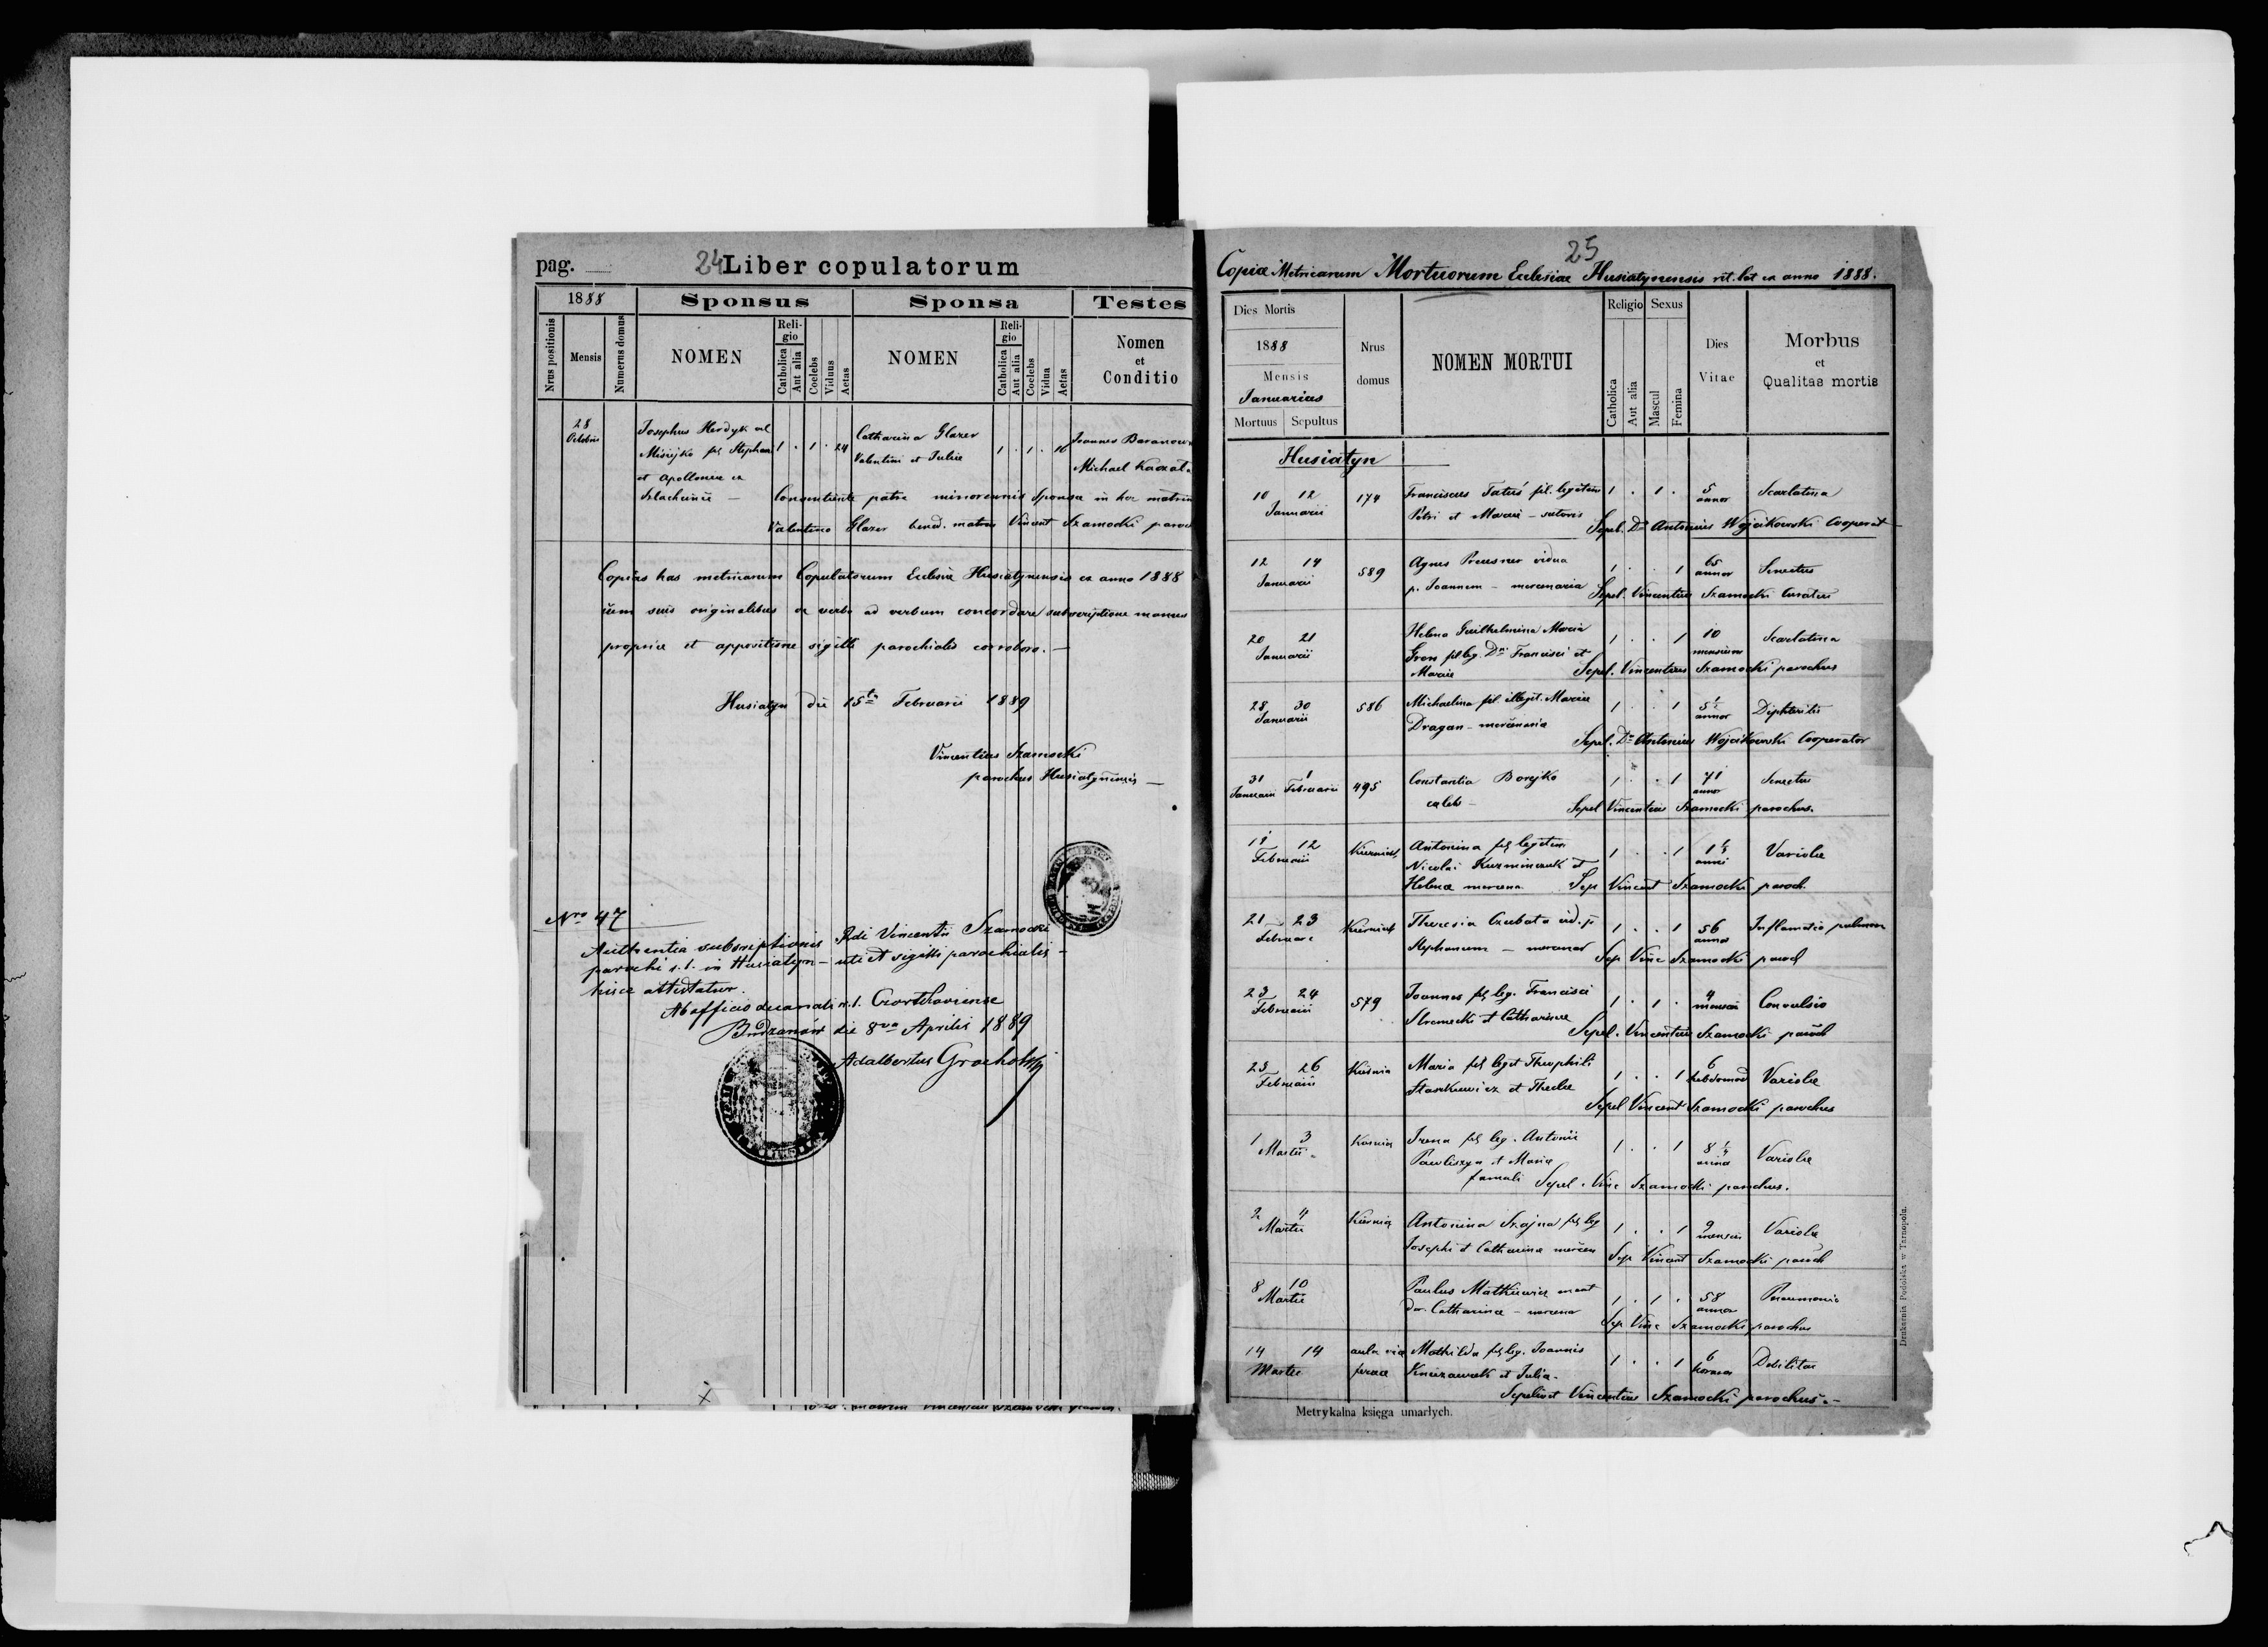 pag. 24 Liber copulatorum
1888 Sponsus Sponsa Testes
Nrus positionis Mensis Numerus domus NOMEN Religio Catholica Aut alia Coelebs Viduus Aetas NOMEN Religio Catholica Aut alia Coelebs Vidua Aetas Nomen et Conditio
28 Octobris
Josephus Herdyk vel
Misiejko fil Stephani 1 . 1 . 24
et Apolloniae
Catharina Glazer
Valentini et Juliae 1 . 1 . 16
Joannes Baranow
Michael
Consentiente patre minorennis Sponsae in hoc matrim
Valentino Glazer bened. matrim Vincent Szamocki paroch
Copias has metricarum Copulatorum Ecclesiae Husiatynensis ex anno 1888
cum suis originalibus de verbo ad verbum concordare subscriptione manus
propriae et appositione sigilli parochialis corroboro. —
Husiatyn die 15ta Februarii 1889
Vincentius Szamocki
parochus Husiatynensis —
Nro 47
Authentia subscriptionis Rdi Vincentii Szamocki
parochi r. l. in Husiatyn — uti et sigilli parochialis —
hisce attestatur.
Ab officio decanali r. l. Czortkoviense
Budzanów die 8va Aprilis 1889
Adalbertus Grocholski
x
25
Copiae Metricarum Mortuorum Ecclesiae Husiatynensis rit. lat ex anno 1888.
Dies Mortis 1888 Mensis Januarius Mortuus Sepultus
Nrus domus
NOMEN MORTUI
Religio Catholica Aut alia
Sexus Mascul Femina
Dies Vitae
Morbus et Qualitas mortis
Husiatyn
10 12 Januarii 174 Franciscus Tatuś fil. legitim 1 . 1 . 5 annor Scarlatina
Petri et Mariae — sutoris Sepel. Dus Antonius Wojcikowski Cooperat
12 14 Januarii 589 Agnes Preusner vidua 1 . . 1 65 annor Senectus
p. Joannem — mercenaria Sepel. Vincentius Szamocki Curatus
20 21 Januarii Helena Guilhelmina Maria 1 . . 1 10 mensium Scarlatina
Gron fil leg. Dni Francisci et
Mariae Sepel. Vincentius Szamocki parochus
28 30 Januarii 586 Michaelina fil. illegit. Mariae 1 . . 1 5½ annor Diphteritis
Dragan — mercenaria
Sepel. Dus Antonius Wojcikowski Cooperator
31 Januarii 1 Februarii 495 Constantia Borejko 1 . . 1 71 annor Senectus
caleb — Sepel Vincentius Szamocki parochus.
11 12 Februarii Antonina fil legitim 1 . . 1 anni Variolae
Nicolai Kuzminczuk et
Helenae mercena Sep Vincent Szamocki paroch.
21 23 Februarii Theresia Czubata vid. p 1 . . 1 56 annor Inflamatio pulmon
Stephanum — mercenar Sep Vinc Szamocki paroch
23 24 Februarii 579 Joannes fil leg. Francisci 1 . 1 . 4 mensium Convulsio
et Catharinae Sepel. Vincentius Szamocki paroch
25 26 Februarii Maria fil legit Theophili 1 . . 1 6 hebdomad Variolae
Staszkiewicz et Theclae
Sepel Vincent Szamocki parochus
1 3 Martii Irena fil leg. Antonii 1 . . 1 8 Variolae
Pawliszyn et Mariae
famuli Sepel. Vinc Szamocki parochus.
2 4 Martii Antonina Szajna fil leg 1 . . 1 9 mensium Variolae
Josephi et Catharinae mercen Sep Vincent Szamocki paroch
8 10 Martii Paulus Matkiewicz 1 . 1 . 58 annor Pneumonia
Catharinae — mercenar Sep Vinc Szamocki parochus
14 14 Martii Mathilda fil leg. Joannis 1 . . 1 6 horar Debilitas
et Julia.
Sepelivit Vincentius Szamocki parochus. —
Metrykalna księga umarłych.
Drukarnia Podolska w Tarnopolu.